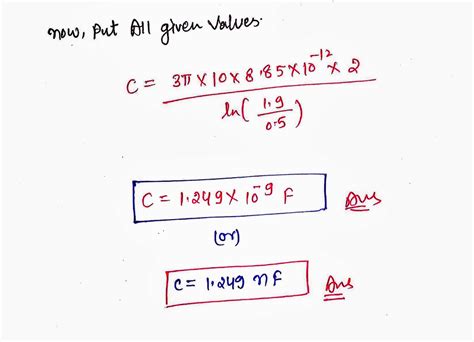 now, Put All given values.
C = 3π × 10 × 8.85 × 10^-12 × 2 / ln(1.9/0.5)
C = 1.249 × 10^-9 F Ans
(or)
C = 1.249 nF Ans